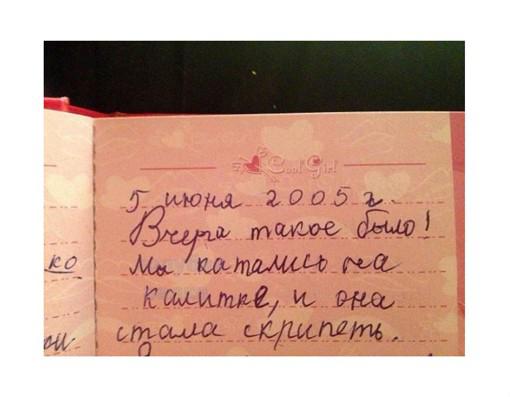 Cool Girl
5 июня 2005 г.
Вчера такое было!
ко
Мы катались на
калитке, и она
стала скрипеть.
ои